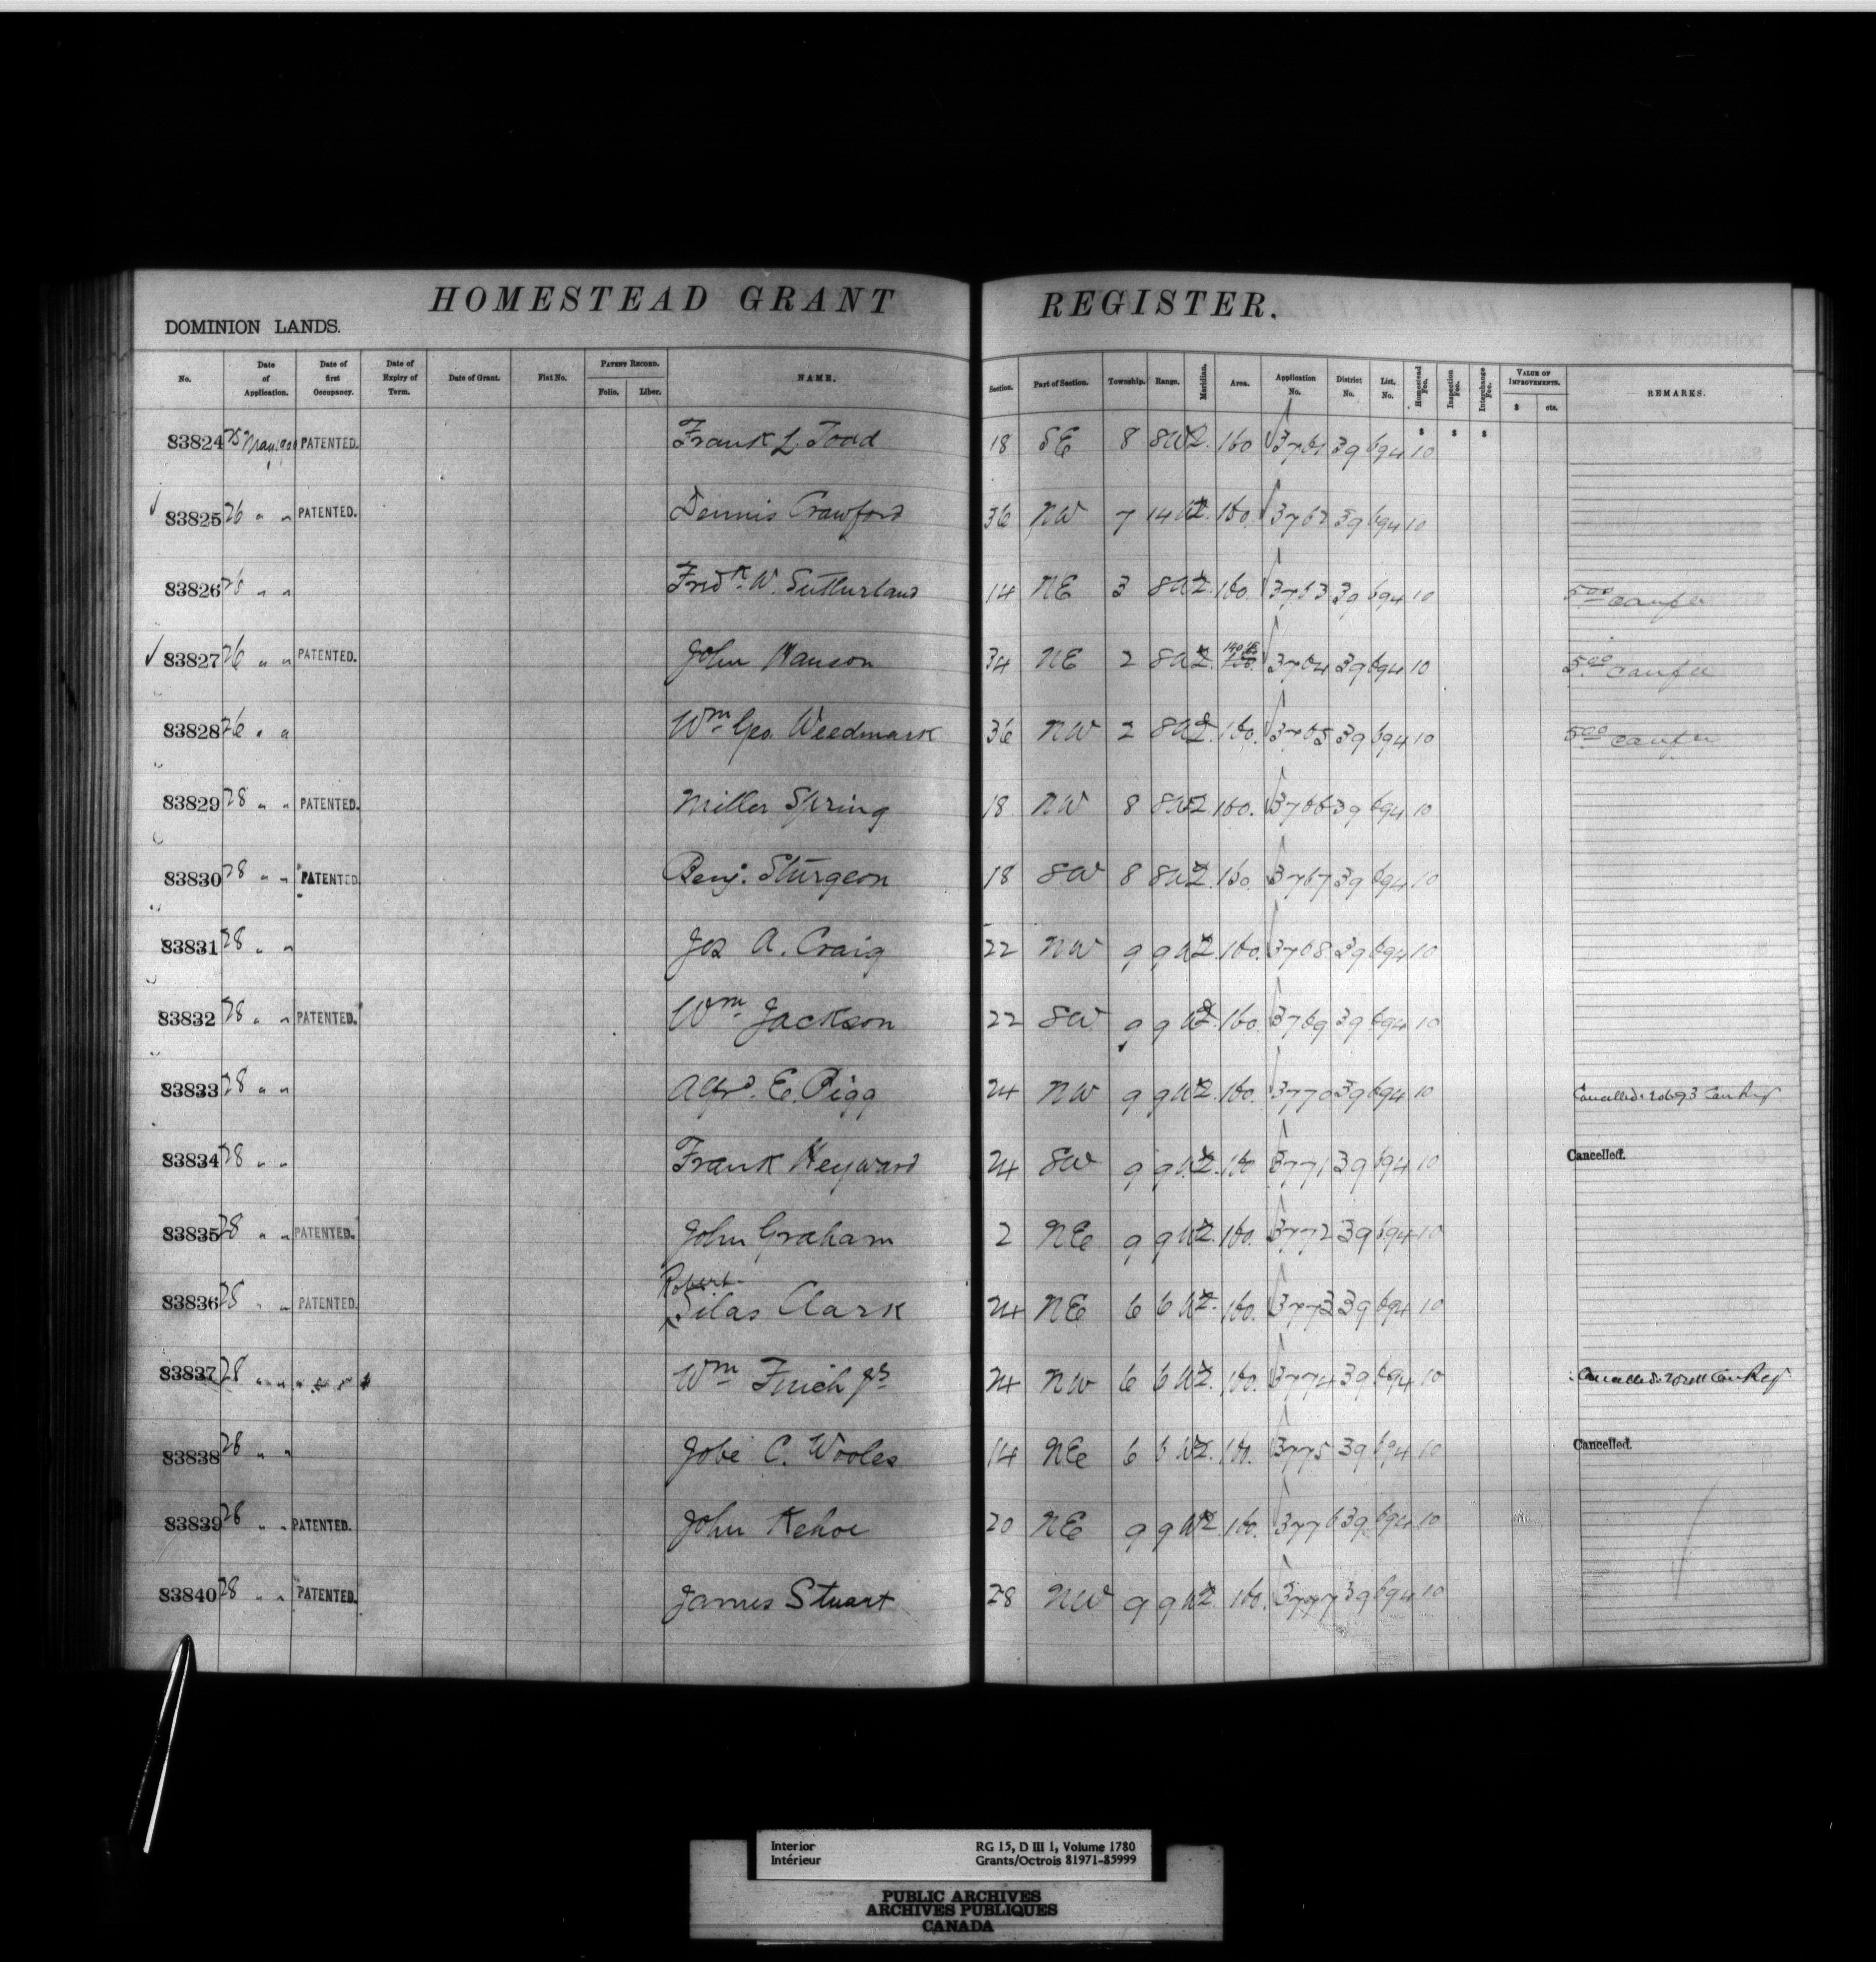 HOMESTEAD GRANT REGISTER.
DOMINION LANDS.
No. Date of Application. Date of first Occupancy. Date of Expiry of Term. Date of Grant. Fiat No. PATENT RECORD. Folio. Liber. NAME. Section. Part of Section. Township. Range. Meridian. Area. Application No. District No. List. No. Homestead Fee. Inspection Fee. Interchange Fee. VALUE OF IMPROVEMENTS. $ cts. REMARKS.
$ $ $
83824 25 May 1900 PATENTED. Frank L. Todd 18 SE 8 8 W 2. 160 3761 39 694 10
83825 26 " " PATENTED. Dennis Crawford 36 NW 7 14 W 2. 160. 3762 39 694 10
83826 26 " " Fredk. W. Sutherland 14 NE 3 8 W 2. 160. 3763 39 694 10 500 canfee
83827 26 " " PATENTED. John Hanson 34 NE 2 8 W 2. 3764 39 694 10 5.00 canfee
83828 26 " " Wm Geo. Weedmark 36 NW 2 8 W 2. 160. 3765 39 694 10 5.00 canfee
83829 28 " " PATENTED. Miller Spring 18 NW 8 8 W 2. 160. 3766 39 694 10
83830 28 " " PATENTED Benj. Sturgeon 18 SW 8 8 W 2. 160. 3767 39 694 10
83831 28 " " Jos A. Craig 22 NW 9 9 W 2. 160. 3768 39 694 10
83832 28 " " PATENTED. Wm Jackson 22 SW 9 9 W 2. 160. 3769 39 694 10
83833 28 " " Alfrd. E. Pigg 24 NW 9 9 W 2. 160. 3770 39 694 10 Cancelled. 20693 Can Reg
83834 28 " " Frank Heyward 24 SW 9 9 W 2. 160 3771 39 694 10 Cancelled.
83835 28 " " PATENTED. John Graham 2 NE 9 9 W 2. 160. 3772 39 694 10
Robert
83836 28 " " PATENTED. Silas Clark 24 NE 6 6 W 2. 160. 3773 39 694 10
83837 28 " " Wm Finch Jr 24 NW 6 6 W 2. 160. 3774 39 694 10 Cancelled. Can Reg
83838 28 " " Jobe C. Wooles 14 NE 6 6 W 2. 160. 3775 39 694 10 Cancelled.
83839 28 " " PATENTED. John Kehoe 20 NE 9 9 W 2. 160. 3776 39 694 10
83840 28 " " PATENTED. James Stuart 28 NW 9 9 W 2. 160. 3777 39 694 10
Interior RG 15, D III 1, Volume 1780
Intérieur Grants/Octrois 81971-85999
PUBLIC ARCHIVES
ARCHIVES PUBLIQUES
CANADA